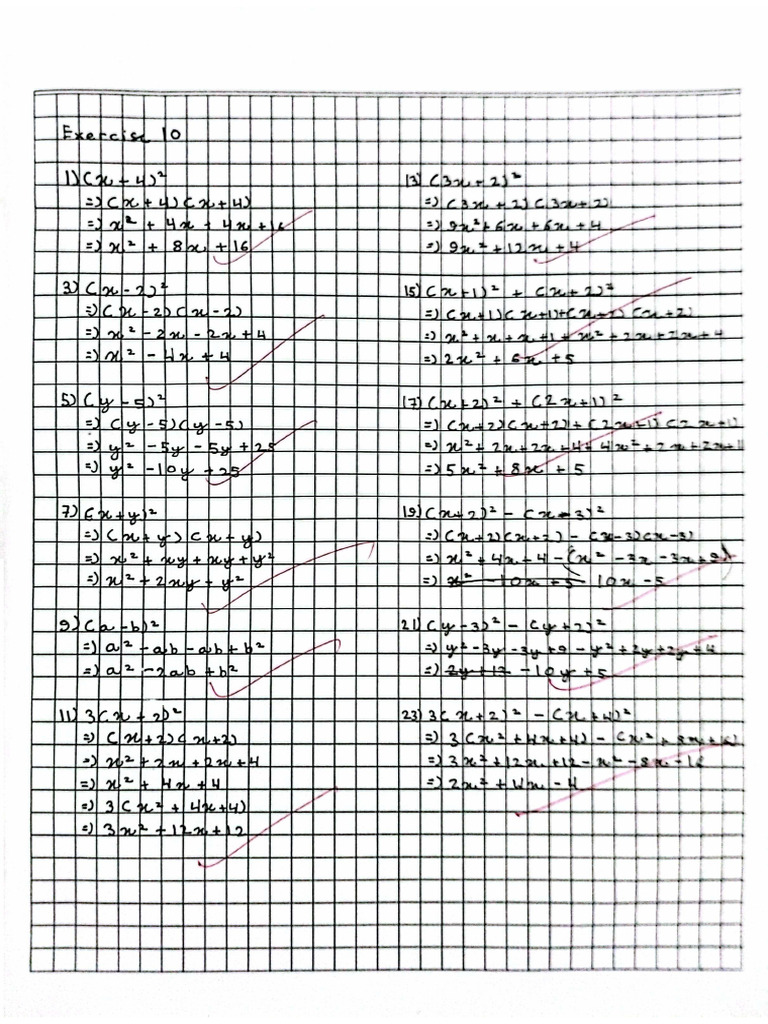 Exercise 10
1) (x + 4)²
=) (x + 4) (x + 4)
=) x² + 4x + 4x + 16
=) x² + 8x + 16
3) (x - 2)²
=) (x - 2) (x - 2)
=) x² - 2x - 2x + 4
=) x² - 4x + 4
5) (y - 5)²
=) (y - 5) (y - 5)
=) y² - 5y - 5y + 25
=) y² - 10y + 25
7) (x + y)²
=) (x + y) (x + y)
=) x² + xy + xy + y²
=) x² + 2xy + y²
9) (a - b)²
=) a² - ab - ab + b²
=) a² - 2ab + b²
11) 3(x + 2)²
=) (x + 2) (x + 2)
=) x² + 2x + 2x + 4
=) x² + 4x + 4
=) 3(x² + 4x + 4)
=) 3x² + 12x + 12
13) (3x + 2)²
=) (3x + 2) (3x + 2)
=) 9x² + 6x + 6x + 4
=) 9x² + 12x + 4
15) (x + 1)² + (x + 2)²
=) (x + 1) (x + 1) + (x + 2) (x + 2)
=) x² + x + x + 1 + x² + 2x + 2x + 4
=) 2x² + 6x + 5
17) (x + 2)² + (2x + 1)²
=) (x + 2) (x + 2) + (2x + 1) (2x + 1)
=) x² + 2x + 2x + 4 + 4x² + 2x + 2x + 1
=) 5x² + 8x + 5
19) (x + 2)² - (x - 3)²
=) (x + 2) (x + 2) - (x - 3) (x - 3)
=) x² + 4x + 4 - (x² - 3x - 3x + 9)
=) x² - 10x + 5 10x - 5
21) (y - 3)² - (y + 2)²
=) y² - 3y - 3y + 9 - y² + 2y + 2y + 4
=) 2y + 13 - 10y + 5
23) 3(x + 2)² - (x + 4)²
=) 3(x² + 4x + 4) - (x² + 8x + 16)
=) 3x² + 12x + 12 - x² - 8x - 16
=) 2x² + 4x - 4